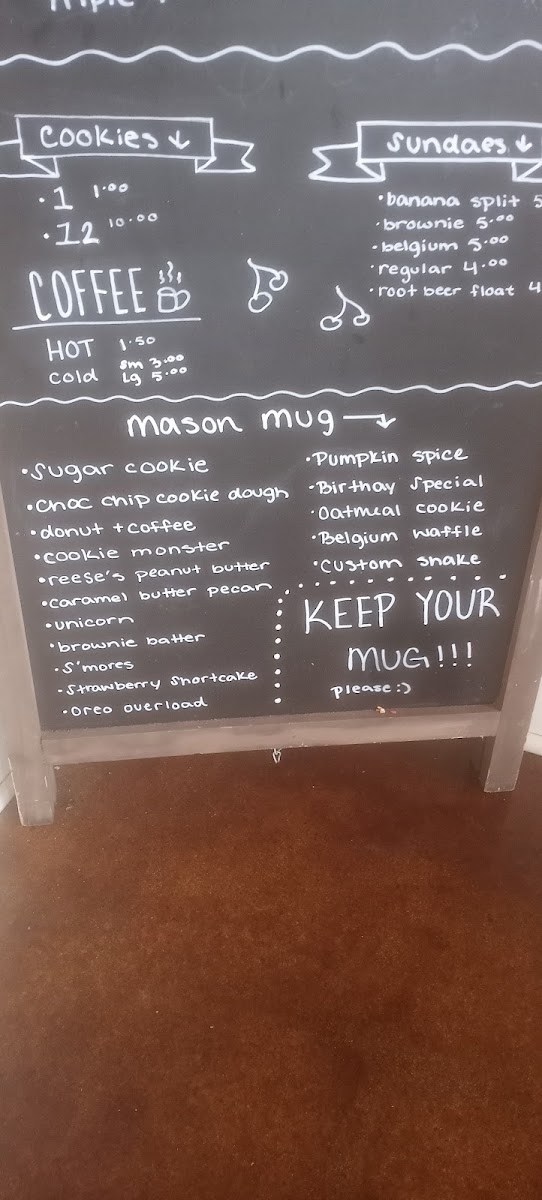 Cookies ↓
• 1 1.00
• 12 10.00
COFFEE
HOT 1.50
Cold Sm 3.00
Lg 5.00
Sundaes ↓
• banana split 5
• brownie 5.00
• belgium 5.00
• regular 4.00
• root beer float 4
mason mug →
• Sugar cookie
• Choc chip cookie dough
• donut + coffee
• cookie monster
• reese's peanut butter
• caramel butter pecan
• unicorn
• brownie batter
• S'mores
• Strawberry Shortcake
• Oreo overload
• Pumpkin spice
• Birthay Special
• Oatmeal cookie
• Belgium waffle
• Custom shake
KEEP YOUR
MUG!!!
please :)